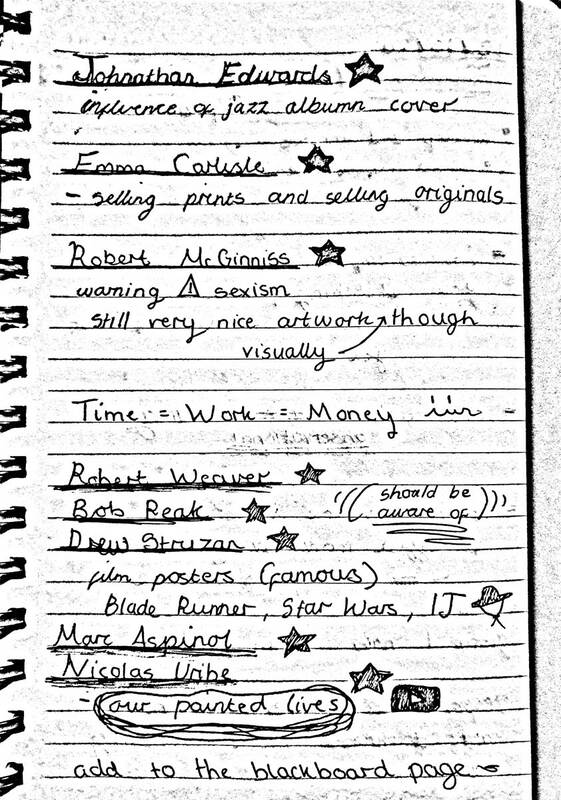 Johnathan Edwards
influence of jazz albumn cover
Emma Carlisle
- selling prints and selling originals
Robert McGinniss
warning ⚠ sexism
still very nice artwork though
visually
Time = Work = Money
Robert Weaver
Bob Peak
should be
aware of
Drew Struzan
film posters (famous)
Blade Runner, Star Wars, IJ
Marc Aspinol
Nicolas Uribe
- our painted lives
add to the blackboard page